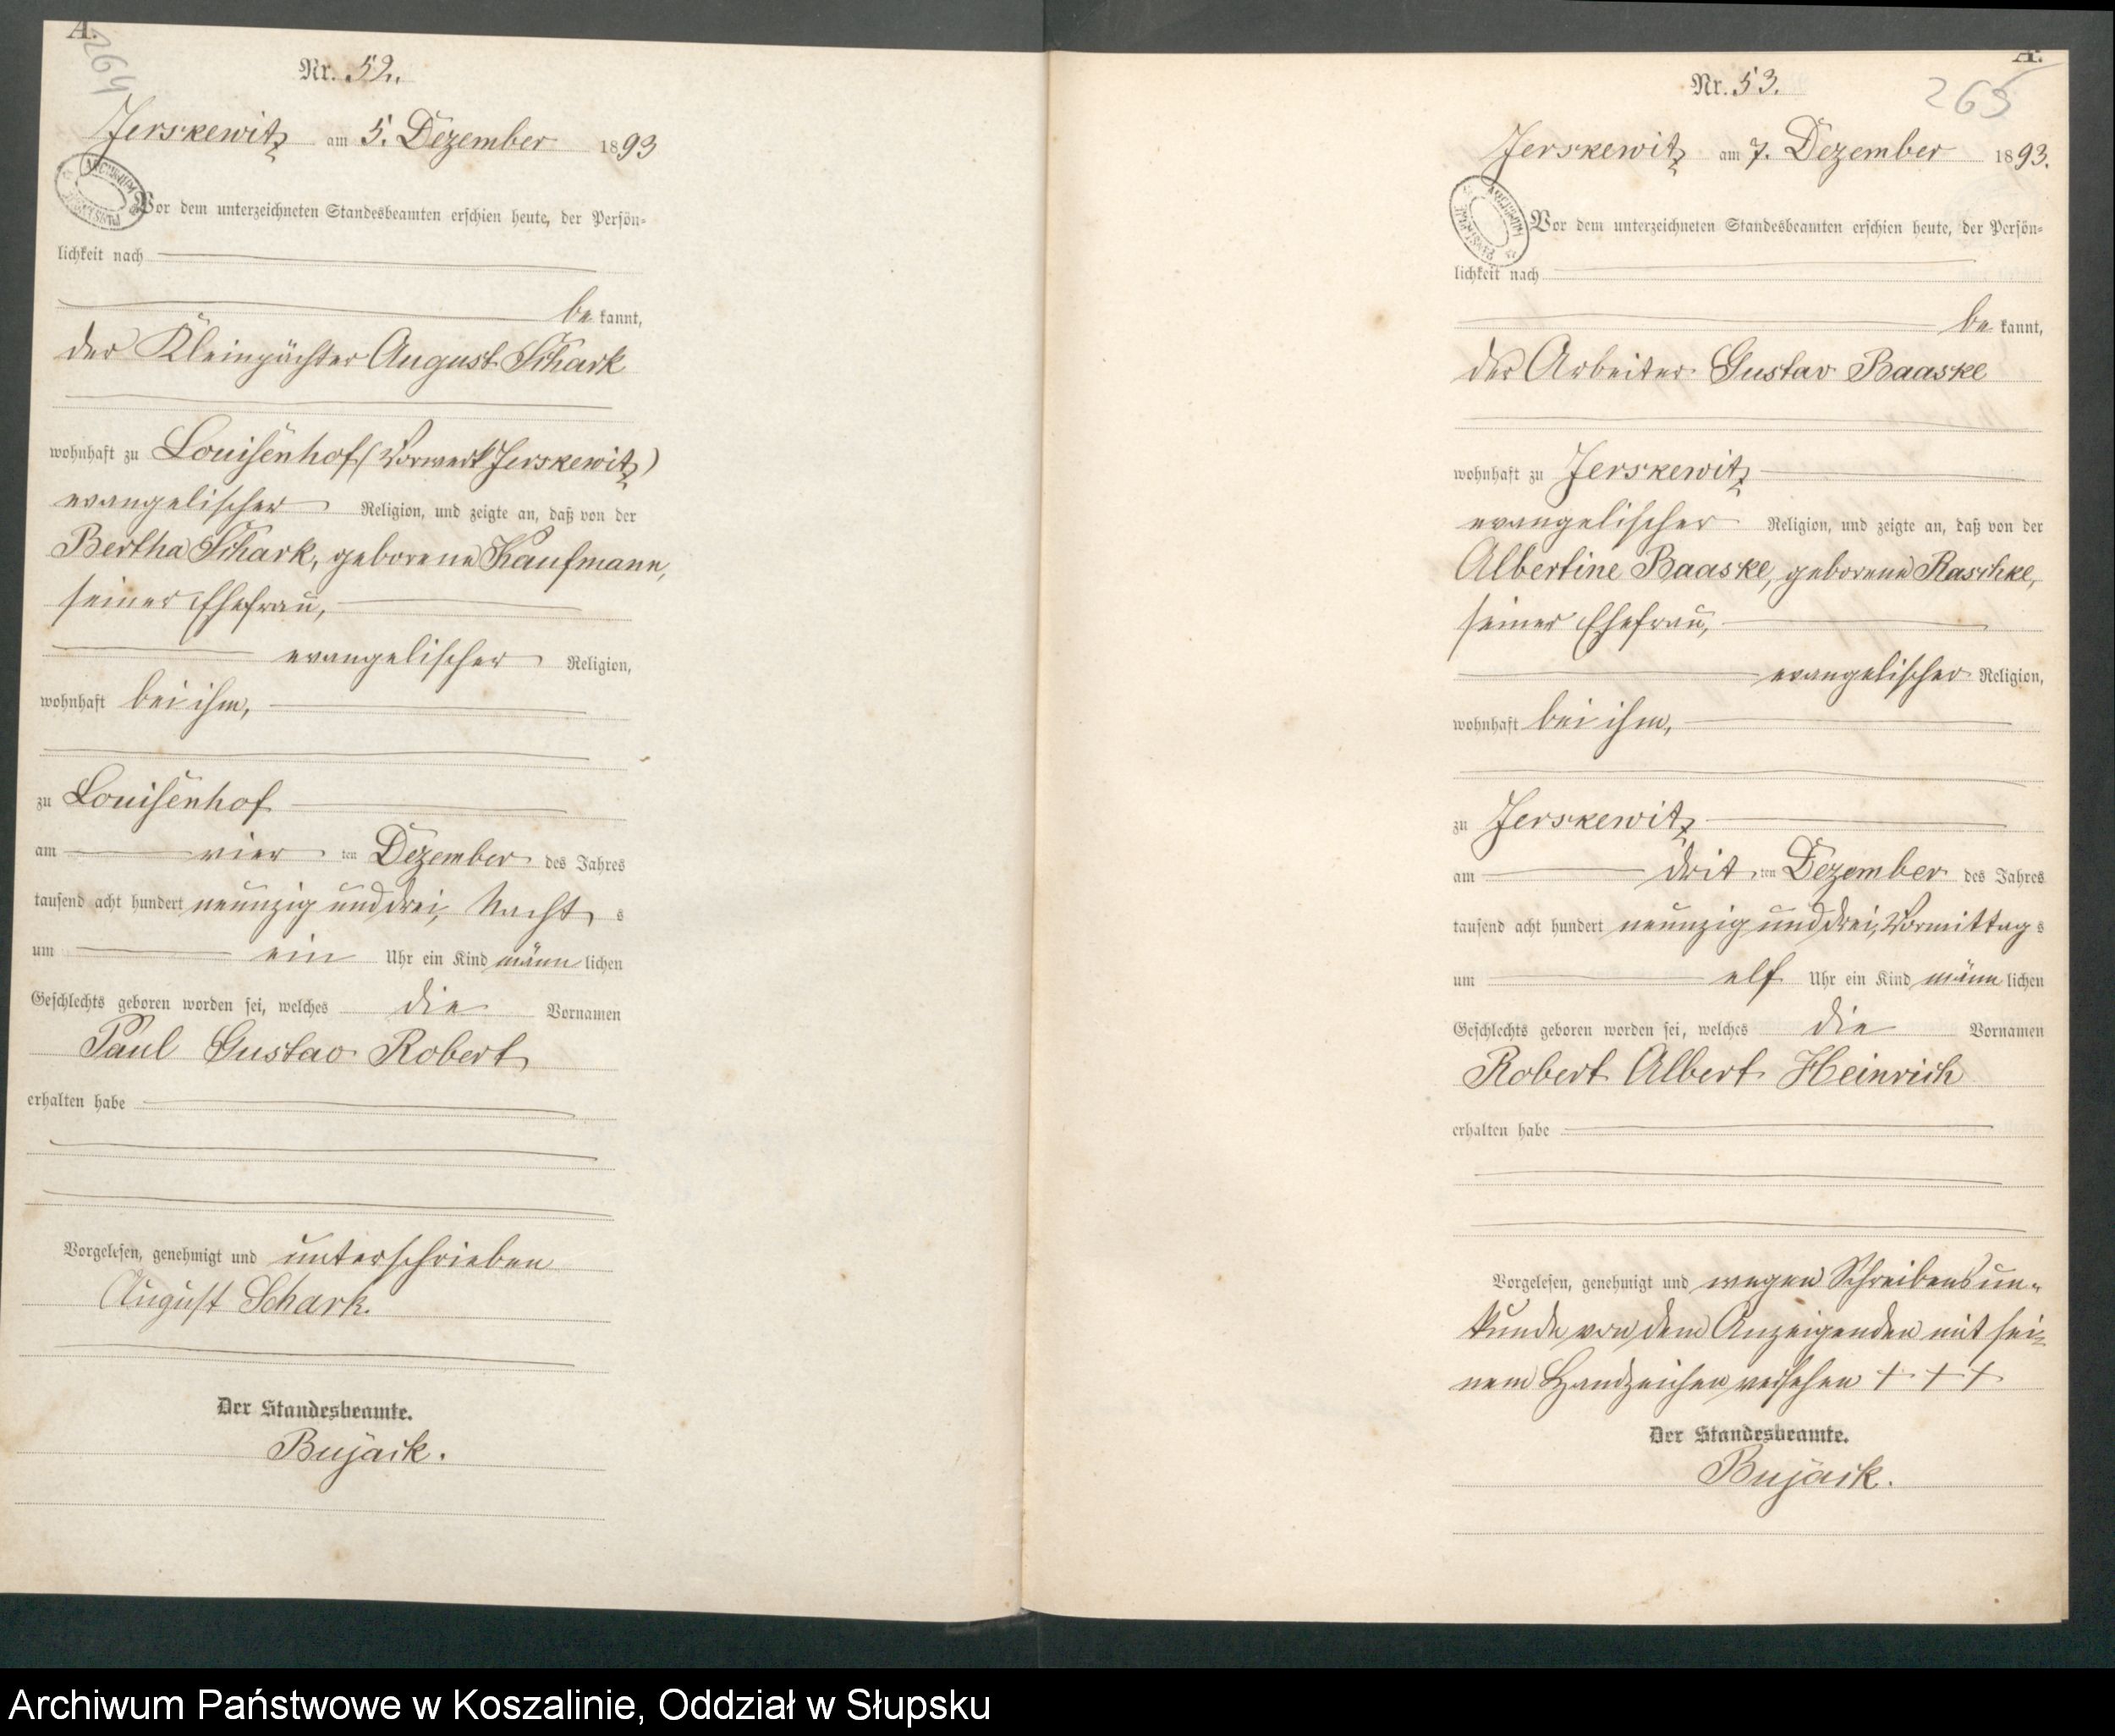 A.
264
Nr. 52.
Jerskewitz am 5. Dezember 1893
Vor dem unterzeichneten Standesbeamten erschien heute, der Persön-
lichkeit nach
be kannt,
der Kleinpächter August Schark
wohnhaft zu Louisenhof (Vorwerk Jerskewitz)
evangelischer Religion, und zeigte an, daß von der
Bertha Schark, geborene Kaufmann,
seiner Ehefrau,
evangelischer Religion,
wohnhaft bei ihm,
zu Louisenhof
am vier ten Dezember des Jahres
tausend acht hundert neunzig und drei, Nacht s
um ein Uhr ein Kind männ lichen
Geschlechts geboren worden sei, welches die Vornamen
Paul Gustav Robert
erhalten habe
Vorgelesen, genehmigt und unterschrieben
August Schark.
Der Standesbeamte.
Bujack.
A.
265
Nr. 53.
Jerskewitz am 7. Dezember 1893.
Vor dem unterzeichneten Standesbeamten erschien heute, der Persön-
lichkeit nach
be kannt,
der Arbeiter Gustav Baaske
wohnhaft zu Jerskewitz
evangelischer Religion, und zeigte an, daß von der
Albertine Baaske, geborene Raschke,
seiner Ehefrau,
evangelischer Religion,
wohnhaft bei ihm,
zu Jerskewitz
am drit ten Dezember des Jahres
tausend acht hundert neunzig und drei, Vormittag s
um elf Uhr ein Kind männ lichen
Geschlechts geboren worden sei, welches die Vornamen
Robert Albert Heinrich
erhalten habe
Vorgelesen, genehmigt und wegen Schreibensun-
kunde von dem Anzeigenden mit sei-
nem Handzeichen versehen + + +
Der Standesbeamte.
Bujack.
Archiwum Państwowe w Koszalinie, Oddział w Słupsku